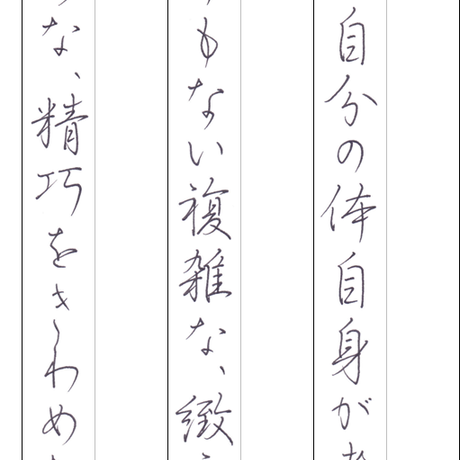 自分の体自身が
もない複雑な、緻
な、精巧をきわめ